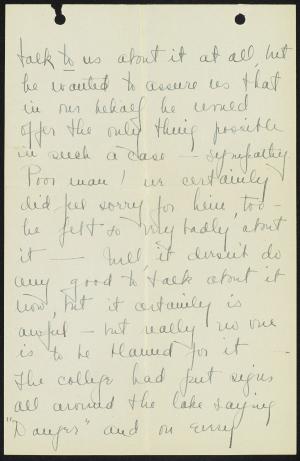 talk to us about it at all, but
he wanted to assure us that
in our behalf he would
offer the only thing possible
in such a case — sympathy.
Poor man! we certainly
did feel sorry for him, too —
he felt so very badly about
it — Well, it doesn't do
any good to talk about it
now, but it certainly is
awful — but really no one
is to be blamed for it
The college had put signs
all around the lake saying
"Danger" and on every